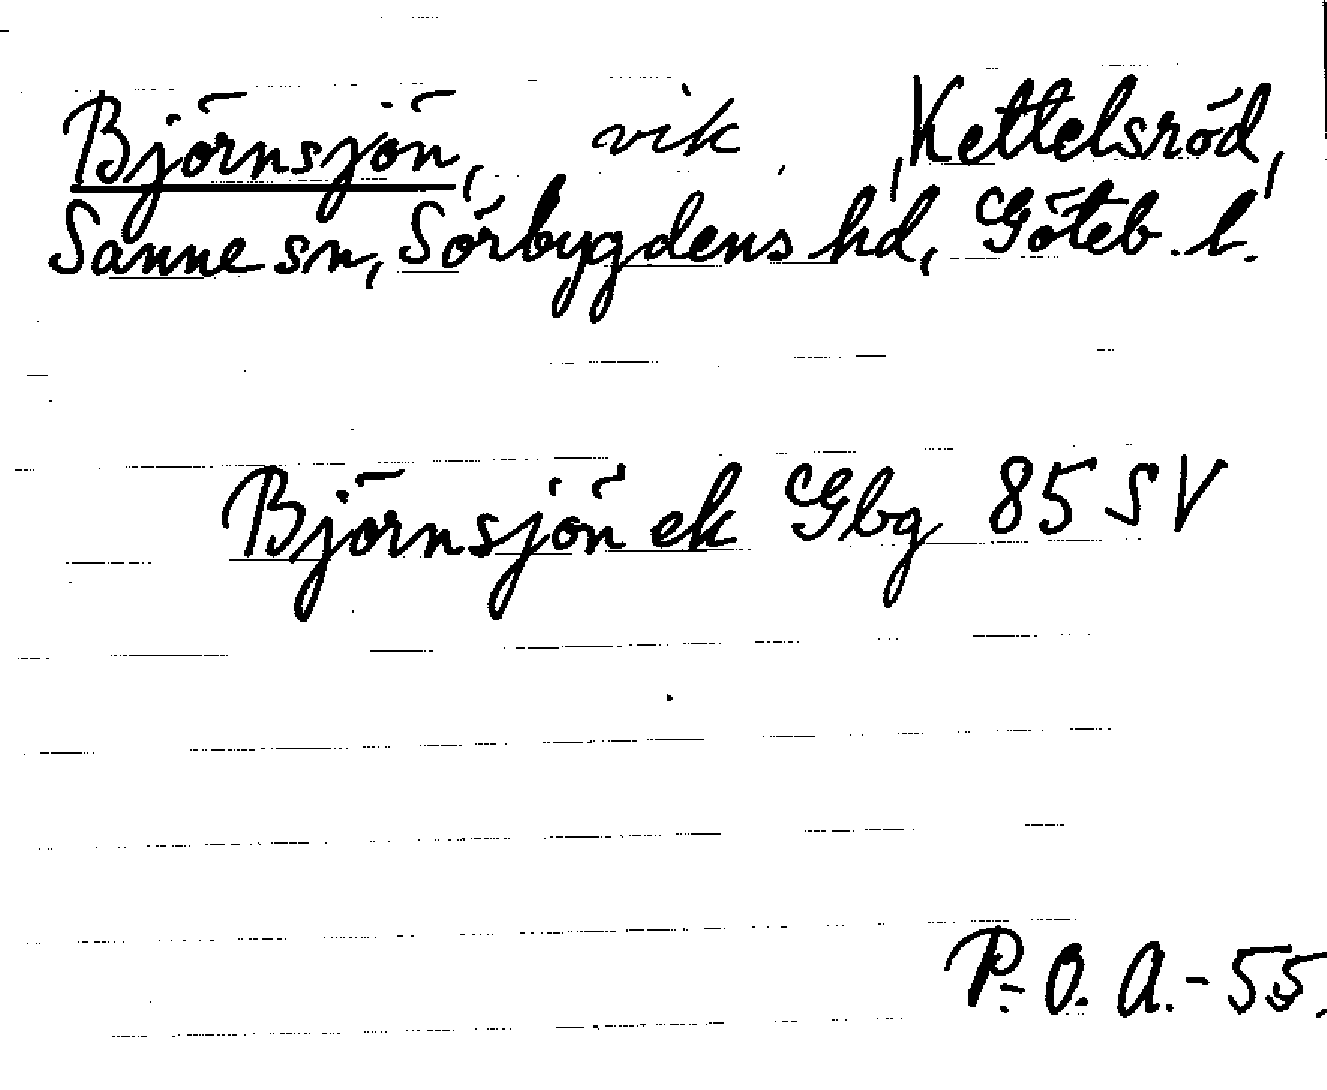 Björnsjön, vik, Kettelsröd,
Sanne sn, Sörbygdens hd, Göteb. l.
Björnsjön ek Gbg 85 SV
P. O. A. - 55.